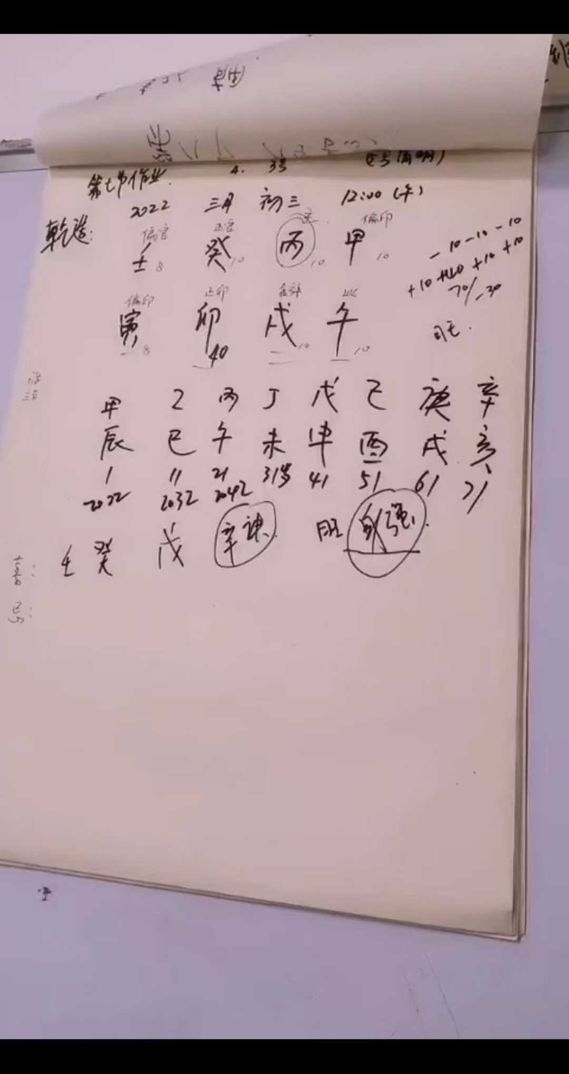 第七节作业. 4. 3号 (5号清明)
2022 三月 初三 12:00 (午)
乾造: 偏官 正官 偏印
壬8 癸10 丙10 甲10
-10-10-10
+10+40+10+10
70/-30
偏印 正印 食神
寅8 卯40 戌10 午10
旺.
甲 乙 丙 丁 戊 己 庚 辛
辰 巳 午 未 申 酉 戌 亥
1 11 21 31岁 41 51 61 71
2022 2032 2042
壬 癸 戊 辛 旺 身强.
喜